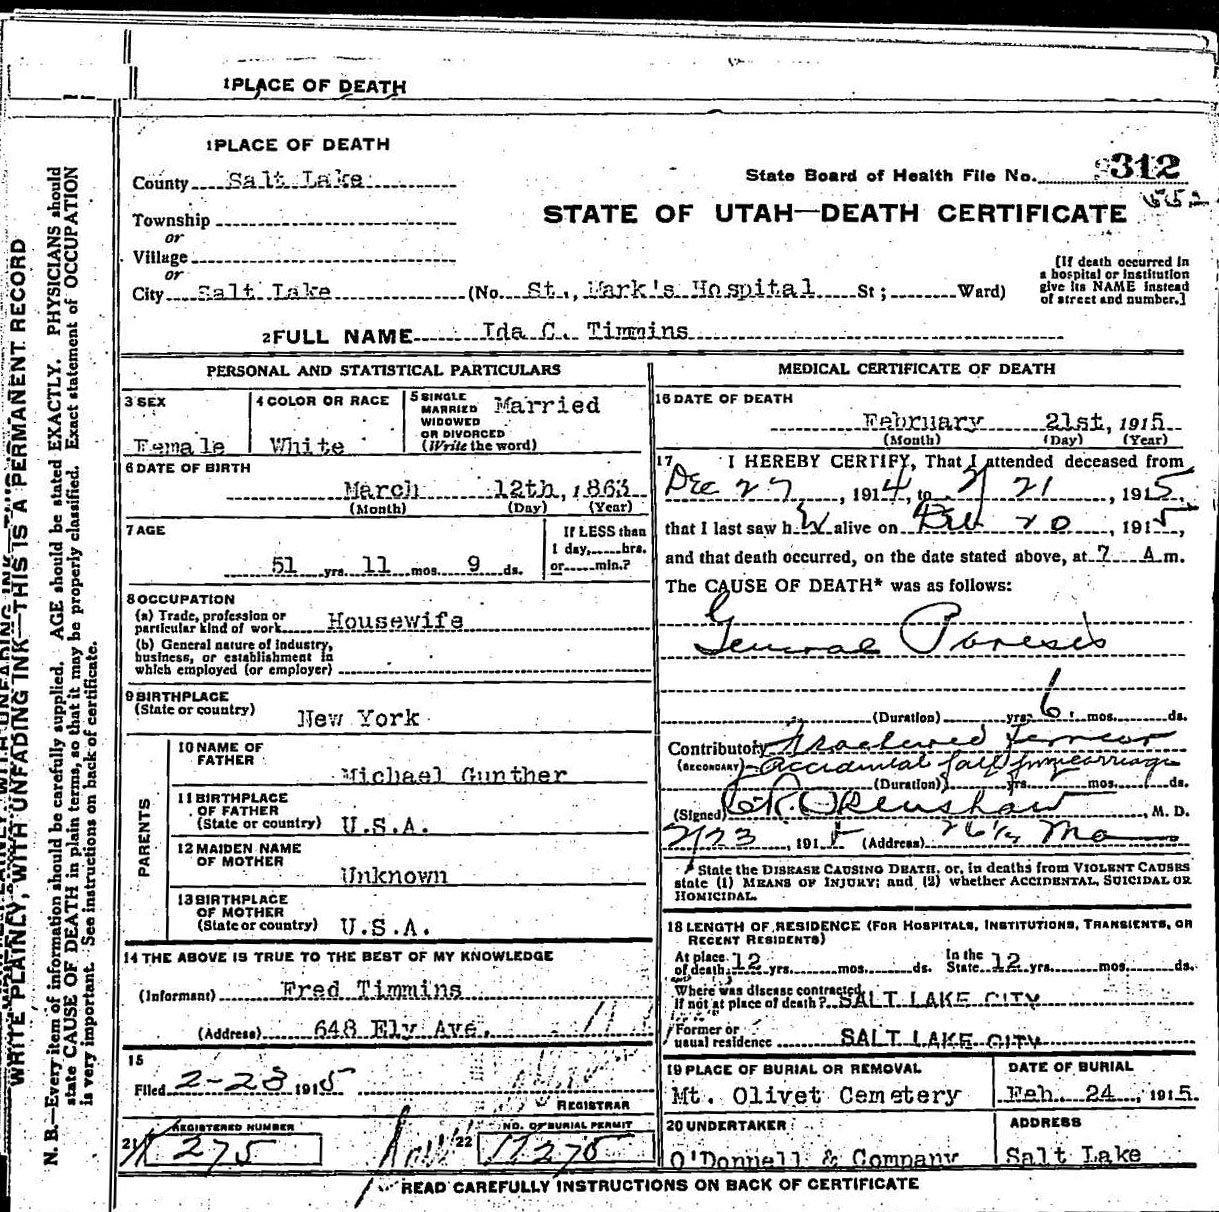 1 PLACE OF DEATH
1 PLACE OF DEATH
County Salt Lake
State Board of Health File No. 312
Township
STATE OF UTAH—DEATH CERTIFICATE
or
Village
or
City Salt Lake (No. St., Mark's Hospital St; Ward)
[If death occurred in a hospital or institution give its NAME instead of street and number.]
2 FULL NAME Ida C. Timmins
PERSONAL AND STATISTICAL PARTICULARS
3 SEX
Female
4 COLOR OR RACE
White
5 SINGLE MARRIED WIDOWED OR DIVORCED (Write the word)
Married
6 DATE OF BIRTH
March 12th, 1863
(Month) (Day) (Year)
7 AGE
51 yrs. 11 mos. 9 ds.
If LESS than 1 day, hrs. or min.?
8 OCCUPATION
(a) Trade, profession or particular kind of work Housewife
(b) General nature of industry, business, or establishment in which employed (or employer)
9 BIRTHPLACE
(State or country) New York
PARENTS
10 NAME OF FATHER
Michael Gunther
11 BIRTHPLACE OF FATHER
(State or country) U.S.A.
12 MAIDEN NAME OF MOTHER
Unknown
13 BIRTHPLACE OF MOTHER
(State or country) U.S.A.
14 THE ABOVE IS TRUE TO THE BEST OF MY KNOWLEDGE
(Informant) Fred Timmins
(Address) 648 Ely Ave.
15
Filed 2-23 1915
REGISTRAR
REGISTERED NUMBER
21 275
NO. OF BURIAL PERMIT
22 17275
MEDICAL CERTIFICATE OF DEATH
16 DATE OF DEATH
February 21st, 1915
(Month) (Day) (Year)
17 I HEREBY CERTIFY, That I attended deceased from
Dec 27, 1914, to 2/21, 1915,
that I last saw her alive on Feb 20, 1915,
and that death occurred, on the date stated above, at 7 A m.
The CAUSE OF DEATH* was as follows:
General Paresis
(Duration) yrs. 6 mos. ds.
Contributory Fractured femur
(SECONDARY) accidental fall from carriage
(Duration) yrs. mos. ds.
(Signed) M. D.
2/23, 1915 (Address)
* State the DISEASE CAUSING DEATH, or, in deaths from VIOLENT CAUSES
state (1) MEANS OF INJURY; and (2) whether ACCIDENTAL, SUICIDAL OR
HOMICIDAL.
18 LENGTH OF RESIDENCE (FOR HOSPITALS, INSTITUTIONS, TRANSIENTS, OR RECENT RESIDENTS)
At place of death 12 yrs. mos. ds. In the State 12 yrs. mos. ds.
Where was disease contracted
If not at place of death? SALT LAKE CITY
Former or usual residence SALT LAKE CITY
19 PLACE OF BURIAL OR REMOVAL
Mt. Olivet Cemetery
DATE OF BURIAL
Feb. 24, 1915.
20 UNDERTAKER
O'Donnell & Company
ADDRESS
Salt Lake
READ CAREFULLY INSTRUCTIONS ON BACK OF CERTIFICATE
WRITE PLAINLY, WITH UNFADING INK—THIS IS A PERMANENT RECORD
N. B.—Every item of information should be carefully supplied. AGE should be stated EXACTLY. PHYSICIANS should
state CAUSE OF DEATH in plain terms, so that it may be properly classified. Exact statement of OCCUPATION
is very important. See instructions on back of certificate.